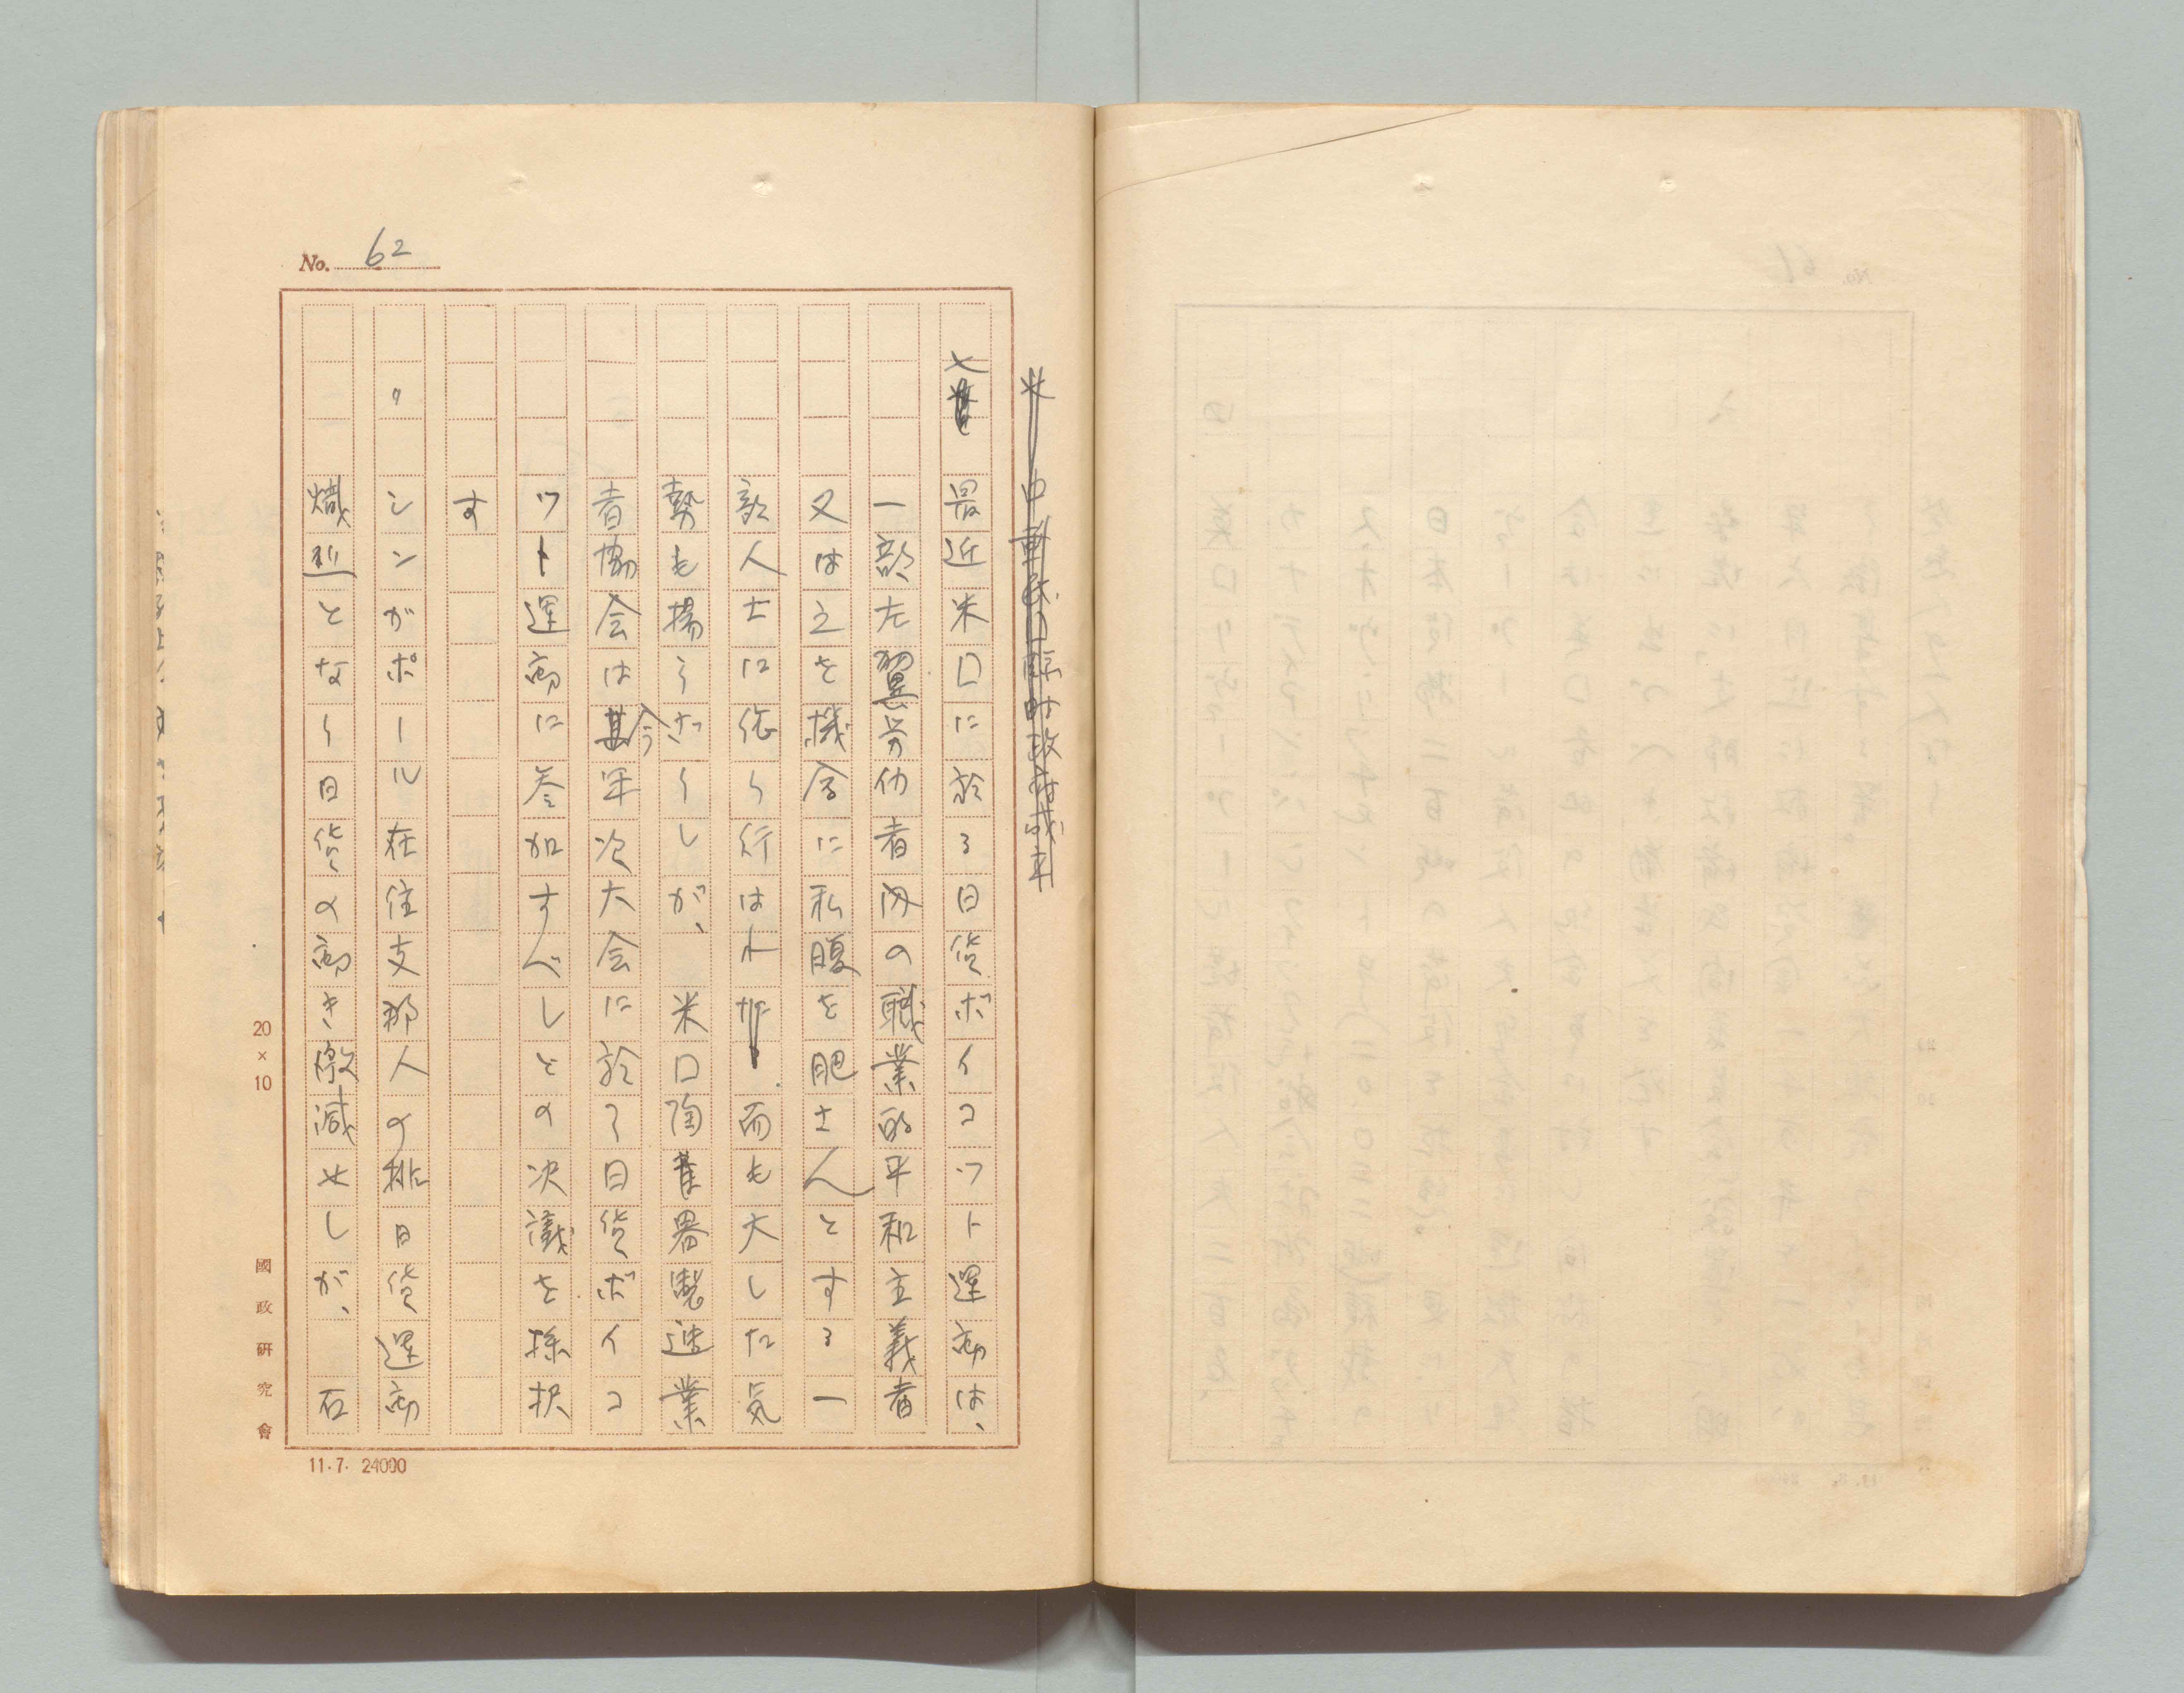 No. 62
七
最近米囗に於る日貨ボイコツト運動は、
一部左翼労仂者内の職業的平和主義者
又は之を機会に私腹を肥さんとする一
部人士に依り行はれ 而も大した気
勢も揚らざりしが、米囗陶器製造業
者協会は今年次大会に於て日貨ボイコ
ツト運動に参加すべしとの決議を採択
す
〃 シンガポール在住支那人の排日貨運動
熾烈となり日貨の動き激減せしが、石
20×10
國政研究會
11.7. 24000